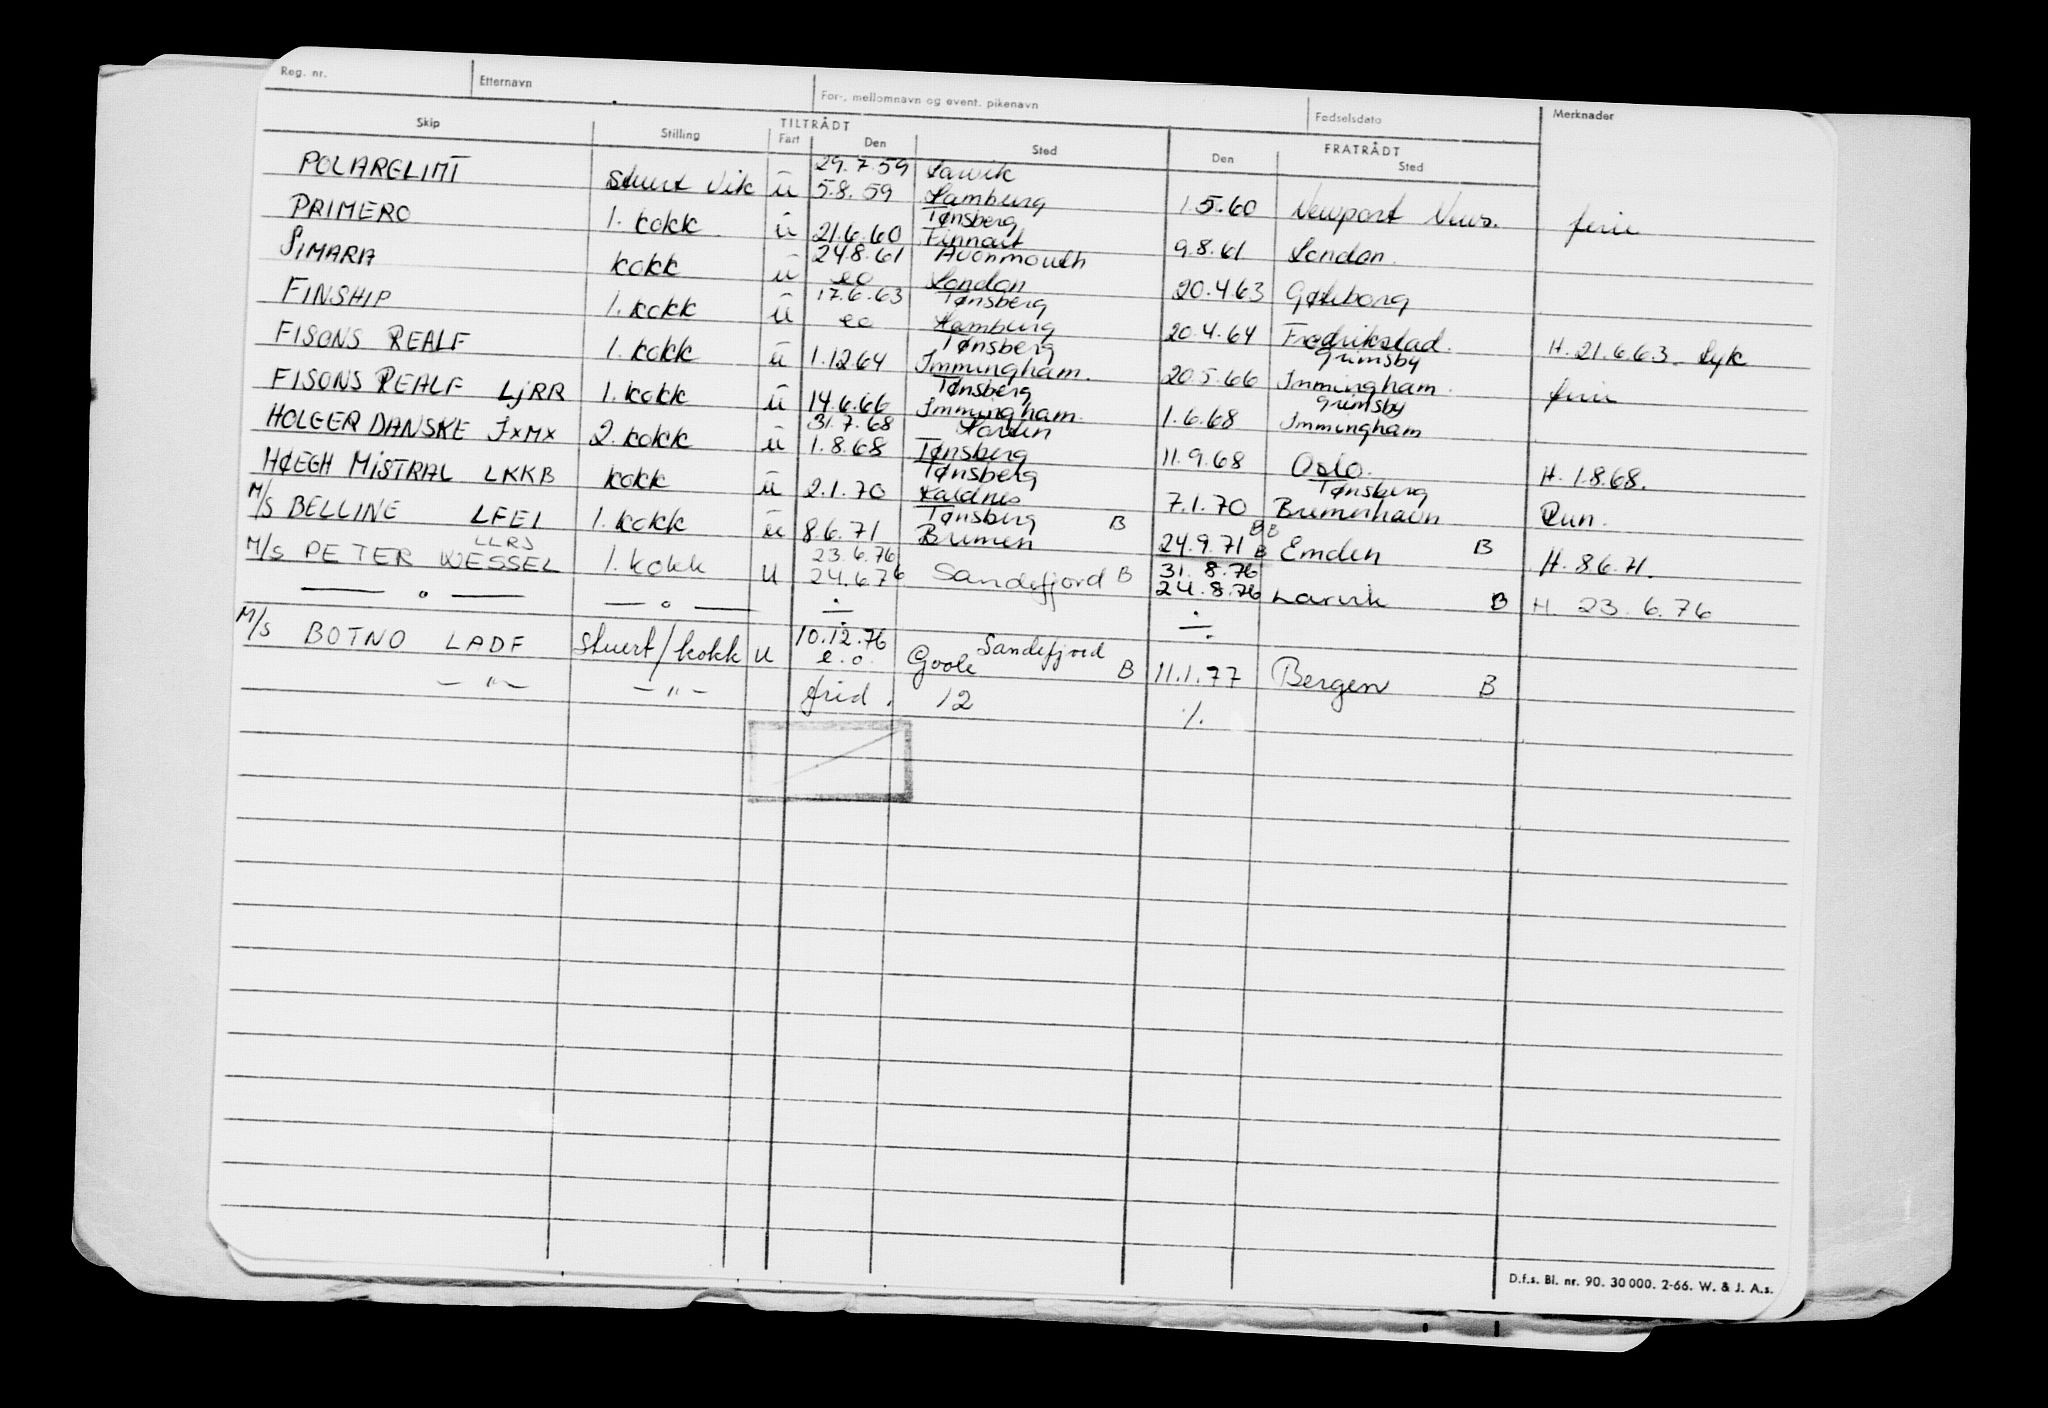 Reg. nr. Etternavn For-, mellomnavn og event. pikenavn Fødselsdato Merknader
TILTRÅDT FRATRÅDT
Skip Stilling Fart Den Sted Den Sted
POLARGLIMT stuert vik ü 29.7.59 Larvik
5.8.59 Hamburg 1.5.60 Newport News. ferie
PRIMERO 1. kokk ü 21.6.60 Tønsberg Finnart 9.8.61 London.
SIMARA kokk ü 24.8.61 Avonmouth
eo London 20.4.63 Gøteborg
FINSHIP 1. kokk ü 17.6.63 Tønsberg
eo Hamburg 20.4.64 Fredrikstad. H. 21.6.63. Syk
FISONS REALF 1. kokk ü 1.12.64 Tønsberg Immingham. 20.5.66 Grimsby Immingham. ferie
FISONS REALF LJRR 1. kokk ü 14.6.66 Tønsberg Immingham. 1.6.68 Grimsby Immingham
HOLGER DANSKE JXMX 2. kokk ü 31.7.68
1.8.68 Tønsberg 11.9.68 Oslo. H. 1.8.68.
HØEGH MISTRAL LKKB kokk ü 2.1.70 Tønsberg Kaldnes 7.1.70 Tønsberg Bremerhavn Run.
M/S BELLINE LFEI 1. kokk ü 8.6.71 Tønsberg Bremen B 24.9.71 B B B Emden B H. 8.6.71.
M/S PETER WESSEL LLRJ 1. kokk u 23.6.76
24.6.76 Sandefjord B 31.8.76
24.8.76 Larvik B H. 23.6.76
— o — — o — ÷ ÷
M/S BOTNO LADF stuert/kokk u 10.12.76 Sandefjord
e.o. Goole B 11.1.77 Bergen B
— " — — " — frid. 12 ٪.
D.f.s. Bl. nr. 90. 30 000. 2-66. W. & J. A.s.